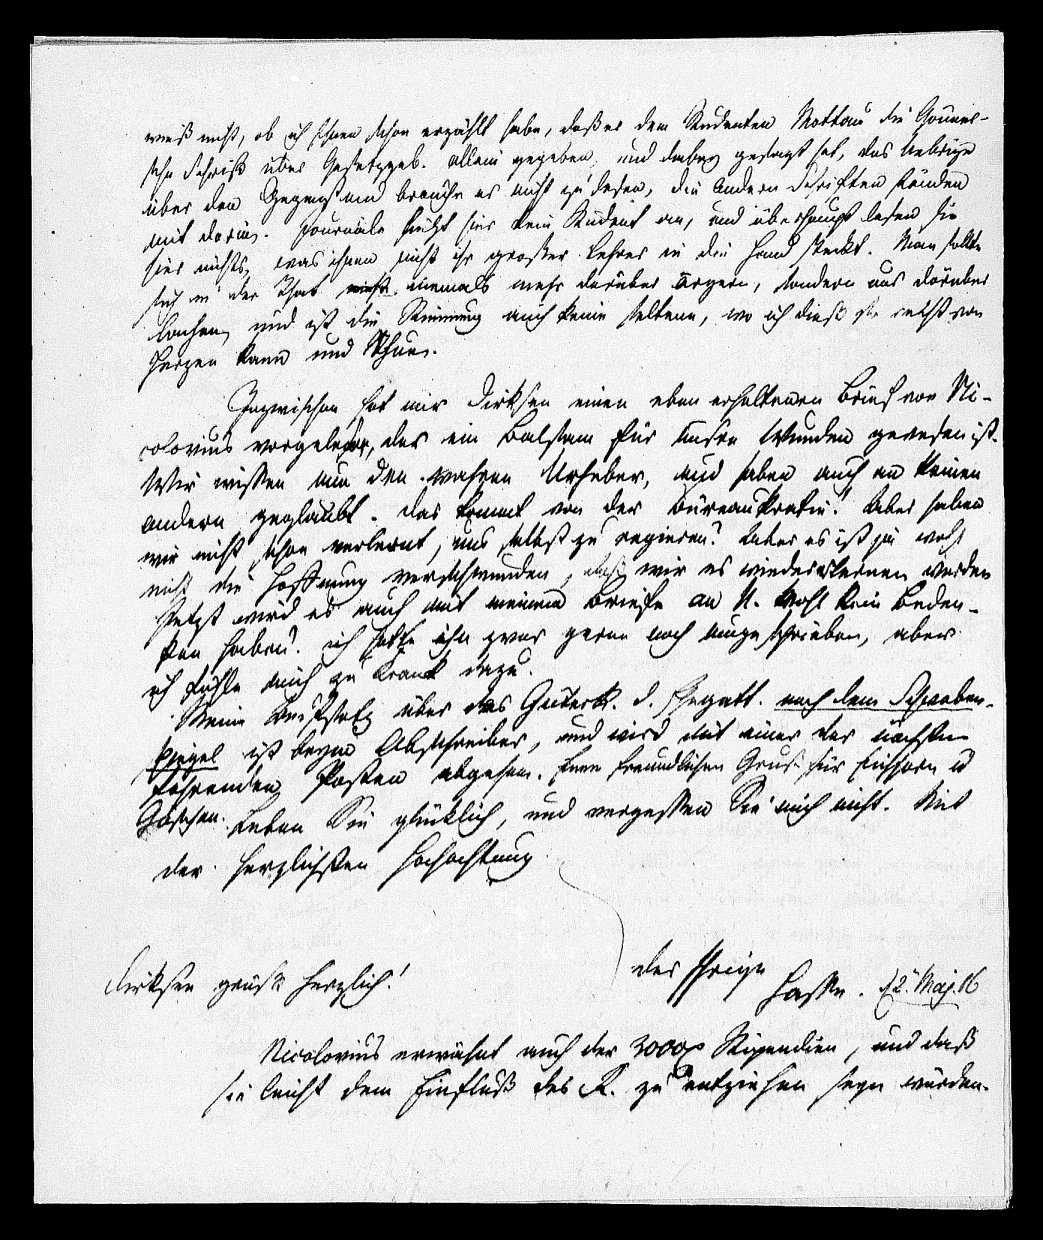 weiß nicht, ob ich Ihnen schon erzählt habe, daß er dem Studenten Mottau die Gönner-
sche Schrift über Gesetzgeb. allein gegeben, und dabey gesagt hat, das Uebrige
über den Gegenstand brauche er nicht zu lesen, die andern Schriften ständen
mit darin. Journale sieht hier kein Student an, und überhaupt lesen sie
hier nichts, was ihnen nicht ihr großer Lehrer in die Hand steckt. Man sollte
sich in der That nicht niemals mehr darüber ärgern, sondern nur darüber
lachen, und ist die Stimmung auch keine seltene, wo ich dieß so recht von
Herzen kann und thue.
Inzwischen hat mir Dirksen einen eben erhaltenen Brief von Ni-
colovius vorgelesen, der ein Balsam für unsre Wunden gewesen ist.
Wir wissen nun den wahren Urheber, und haben auch an keinen
andern geglaubt. Das kommt von der Büreaukratie! Aber haben
wir nicht schon verlernt, uns selbst zu regieren? Aber es ist ja wohl
nicht die Hoffnung verschwunden, daß wir es wiedererlernen werden
Jetzt wird es auch mit meinem Briefe an N. wohl kein Beden-
ken haben? ich hätte ihn zwar gerne noch umgeschrieben, aber
ich fühle mich zu krank dazu.
Mein Aufsatz über das Güterr. d. Ehegatt. nach dem Schwaben-
spiegel ist beym Abschreiber, und wird mit einer der nächsten
fahrenden Posten abgehen. Einen freundlichen Gruß für Eichhorn u
Göschen. Leben Sie glücklich, und vergessen Sie mich nicht. Mit
der herzlichsten Hochachtung
der Ihrige
Dirksen grüßt herzlich!
Hasse. d 2. Maj. 16
Nicolovius erwähnt auch der 3000 Stipendien, und daß
sie leicht dem Einfluß des R. zu entziehen seyn würden.